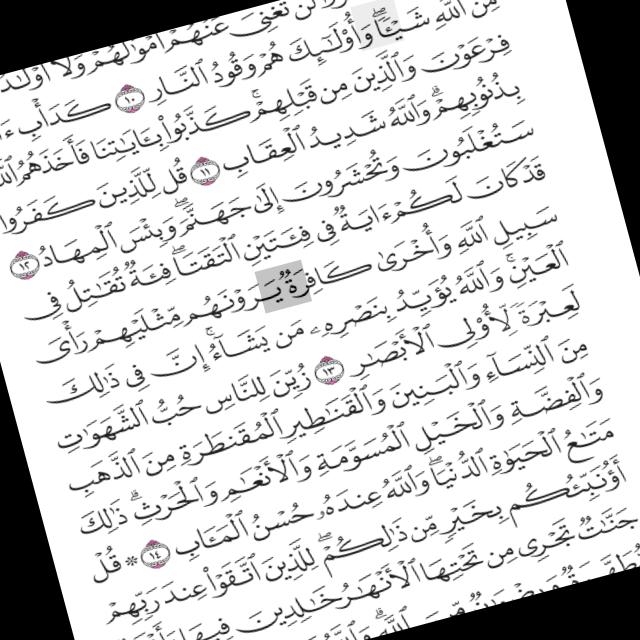 تُغْنِىَ عَنْهُمْ أَمْوَٰلُهُمْ وَلَآ أَوْلَٰدُ
مِّنَ ٱللَّهِ شَيْـًٔا ۖ وَأُو۟لَٰٓئِكَ هُمْ وَقُودُ ٱلنَّارِ ١٠ كَدَأْبِ ءَا
فِرْعَوْنَ وَٱلَّذِينَ مِن قَبْلِهِمْ ۚ كَذَّبُوا۟ بِـَٔايَٰتِنَا فَأَخَذَهُمُ ٱللَّ
بِذُنُوبِهِمْ ۗ وَٱللَّهُ شَدِيدُ ٱلْعِقَابِ ١١ قُل لِّلَّذِينَ كَفَرُوا۟
سَتُغْلَبُونَ وَتُحْشَرُونَ إِلَىٰ جَهَنَّمَ ۚ وَبِئْسَ ٱلْمِهَادُ ١٢
قَدْ كَانَ لَكُمْ ءَايَةٌ فِى فِئَتَيْنِ ٱلْتَقَتَا ۖ فِئَةٌ تُقَٰتِلُ فِى
سَبِيلِ ٱللَّهِ وَأُخْرَىٰ كَافِرَةٌ يَرَوْنَهُم مِّثْلَيْهِمْ رَأْىَ
ٱلْعَيْنِ ۚ وَٱللَّهُ يُؤَيِّدُ بِنَصْرِهِۦ مَن يَشَآءُ ۗ إِنَّ فِى ذَٰلِكَ
لَعِبْرَةً لِّأُو۟لِى ٱلْأَبْصَٰرِ ١٣ زُيِّنَ لِلنَّاسِ حُبُّ ٱلشَّهَوَٰتِ
مِنَ ٱلنِّسَآءِ وَٱلْبَنِينَ وَٱلْقَنَٰطِيرِ ٱلْمُقَنطَرَةِ مِنَ ٱلذَّهَبِ
وَٱلْفِضَّةِ وَٱلْخَيْلِ ٱلْمُسَوَّمَةِ وَٱلْأَنْعَٰمِ وَٱلْحَرْثِ ۗ ذَٰلِكَ
مَتَٰعُ ٱلْحَيَوٰةِ ٱلدُّنْيَا ۖ وَٱللَّهُ عِندَهُۥ حُسْنُ ٱلْمَـَٔابِ ١٤ ۞ قُلْ
أَؤُنَبِّئُكُم بِخَيْرٍ مِّن ذَٰلِكُمْ ۚ لِلَّذِينَ ٱتَّقَوْا۟ عِندَ رَبِّهِمْ
جَنَّٰتٌ تَجْرِى مِن تَحْتِهَا ٱلْأَنْهَٰرُ خَٰلِدِينَ فِيهَا